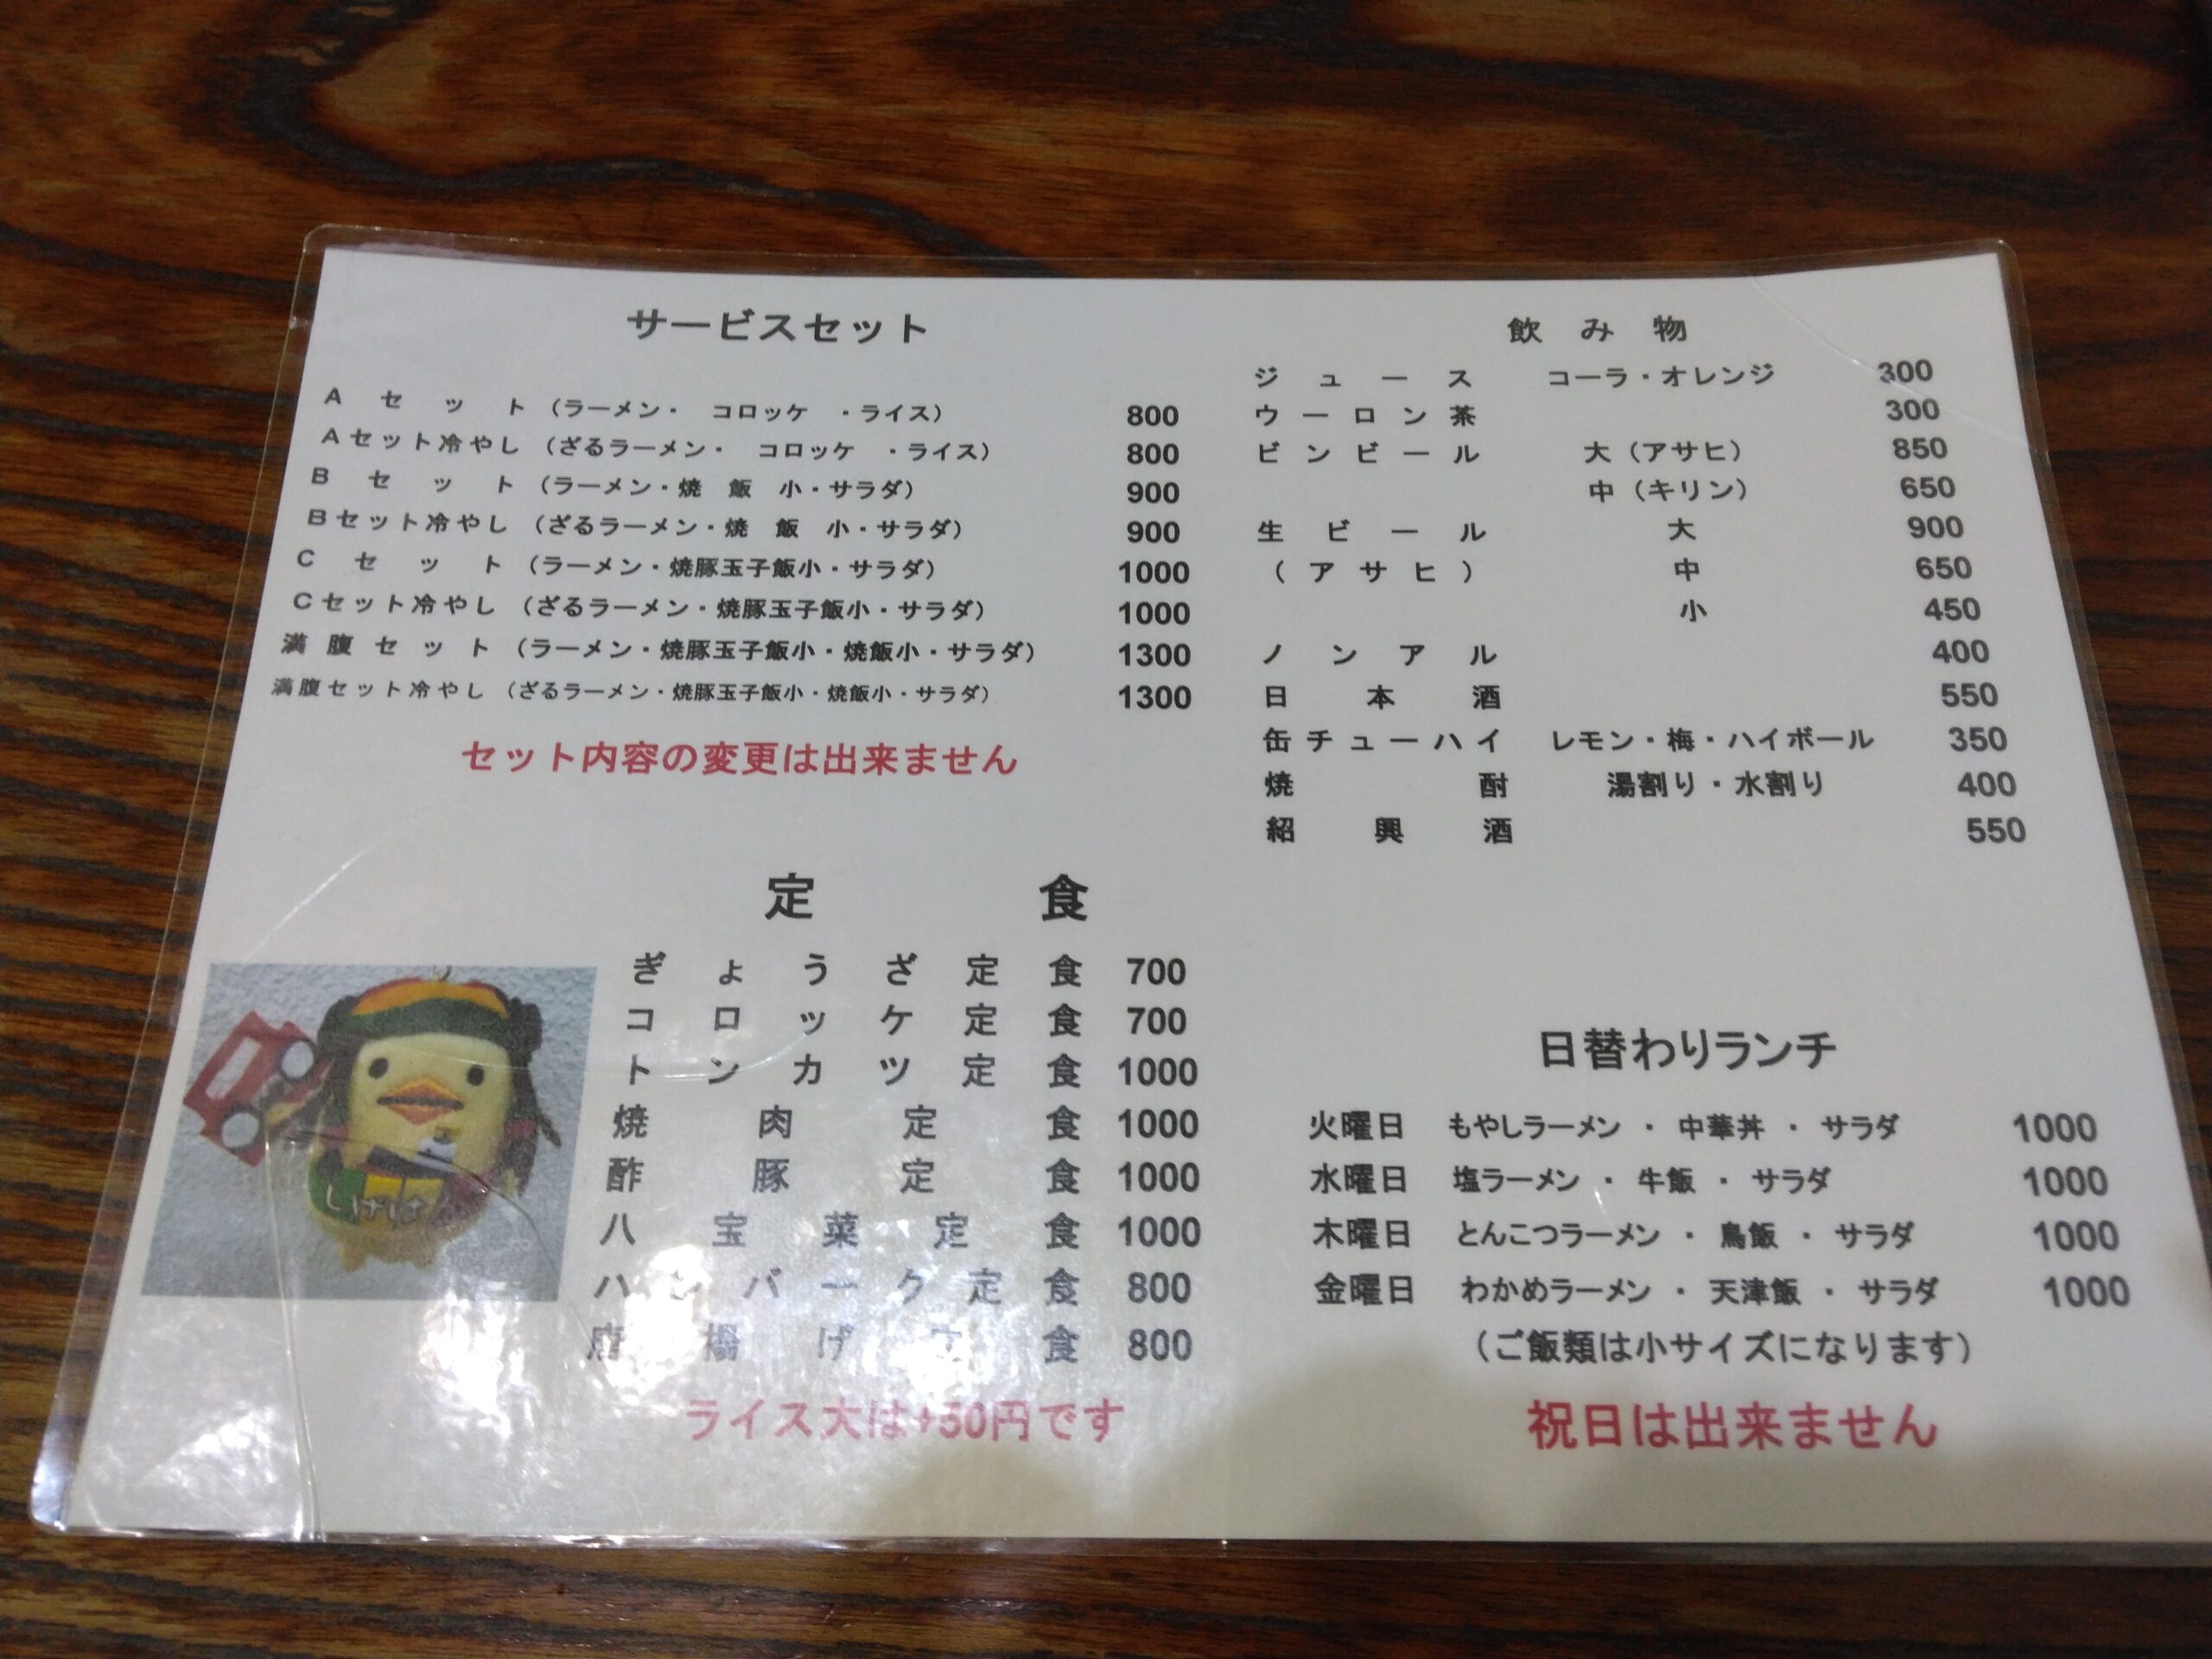 サービスセット
Aセット（ラーメン・ コロッケ ・ライス） 800
Aセット冷やし（ざるラーメン・ コロッケ ・ライス） 800
Bセット（ラーメン・焼 飯 小・サラダ） 900
Bセット冷やし（ざるラーメン・焼 飯 小・サラダ） 900
Cセット（ラーメン・焼豚玉子飯小・サラダ） 1000
Cセット冷やし（ざるラーメン・焼豚玉子飯小・サラダ） 1000
満腹セット（ラーメン・焼豚玉子飯小・焼飯小・サラダ） 1300
満腹セット冷やし（ざるラーメン・焼豚玉子飯小・焼飯小・サラダ） 1300
セット内容の変更は出来ません
定食
ぎょうざ定食 700
コロッケ定食 700
トンカツ定食 1000
焼肉定食 1000
酢豚定食 1000
八宝菜定食 1000
ハンバーク定食 800
唐揚げ定食 800
ライス大は+50円です
しげは
飲み物
ジュース コーラ・オレンジ 300
ウーロン茶 300
ビンビール 大（アサヒ） 850
中（キリン） 650
生ビール 大 900
（アサヒ） 中 650
小 450
ノンアル 400
日本酒 550
缶チューハイ レモン・梅・ハイボール 350
焼酎 湯割り・水割り 400
紹興酒 550
日替わりランチ
火曜日 もやしラーメン ・ 中華丼 ・ サラダ 1000
水曜日 塩ラーメン ・ 牛飯 ・ サラダ 1000
木曜日 とんこつラーメン ・ 鳥飯 ・ サラダ 1000
金曜日 わかめラーメン ・ 天津飯 ・ サラダ 1000
（ご飯類は小サイズになります）
祝日は出来ません